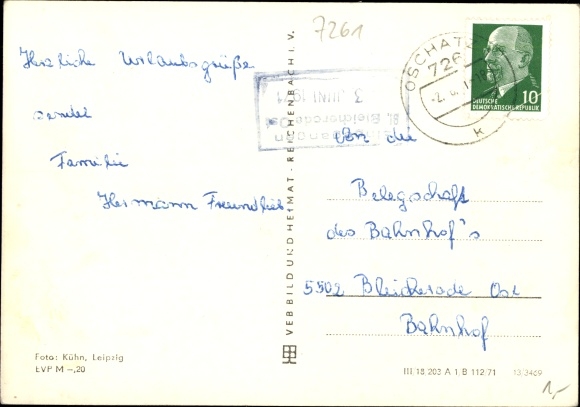 7261
Herzliche Urlaubsgrüße
sendet
Familie
Hermann Freundlieb
OSCHATZ
726
k
DEUTSCHE
DEMOKRATISCHE REPUBLIK
10
3. JUNI 1971
Bleicherode Ost
An die
Belegschaft
des Bahnhof's
5502 Bleicherode Ost
Bahnhof
VEB BILD UND HEIMAT · REICHENBACH I. V.
Foto: Kühn, Leipzig
EVP M –,20
III 18 203 A 1 B 112 71
13/3469
1,-